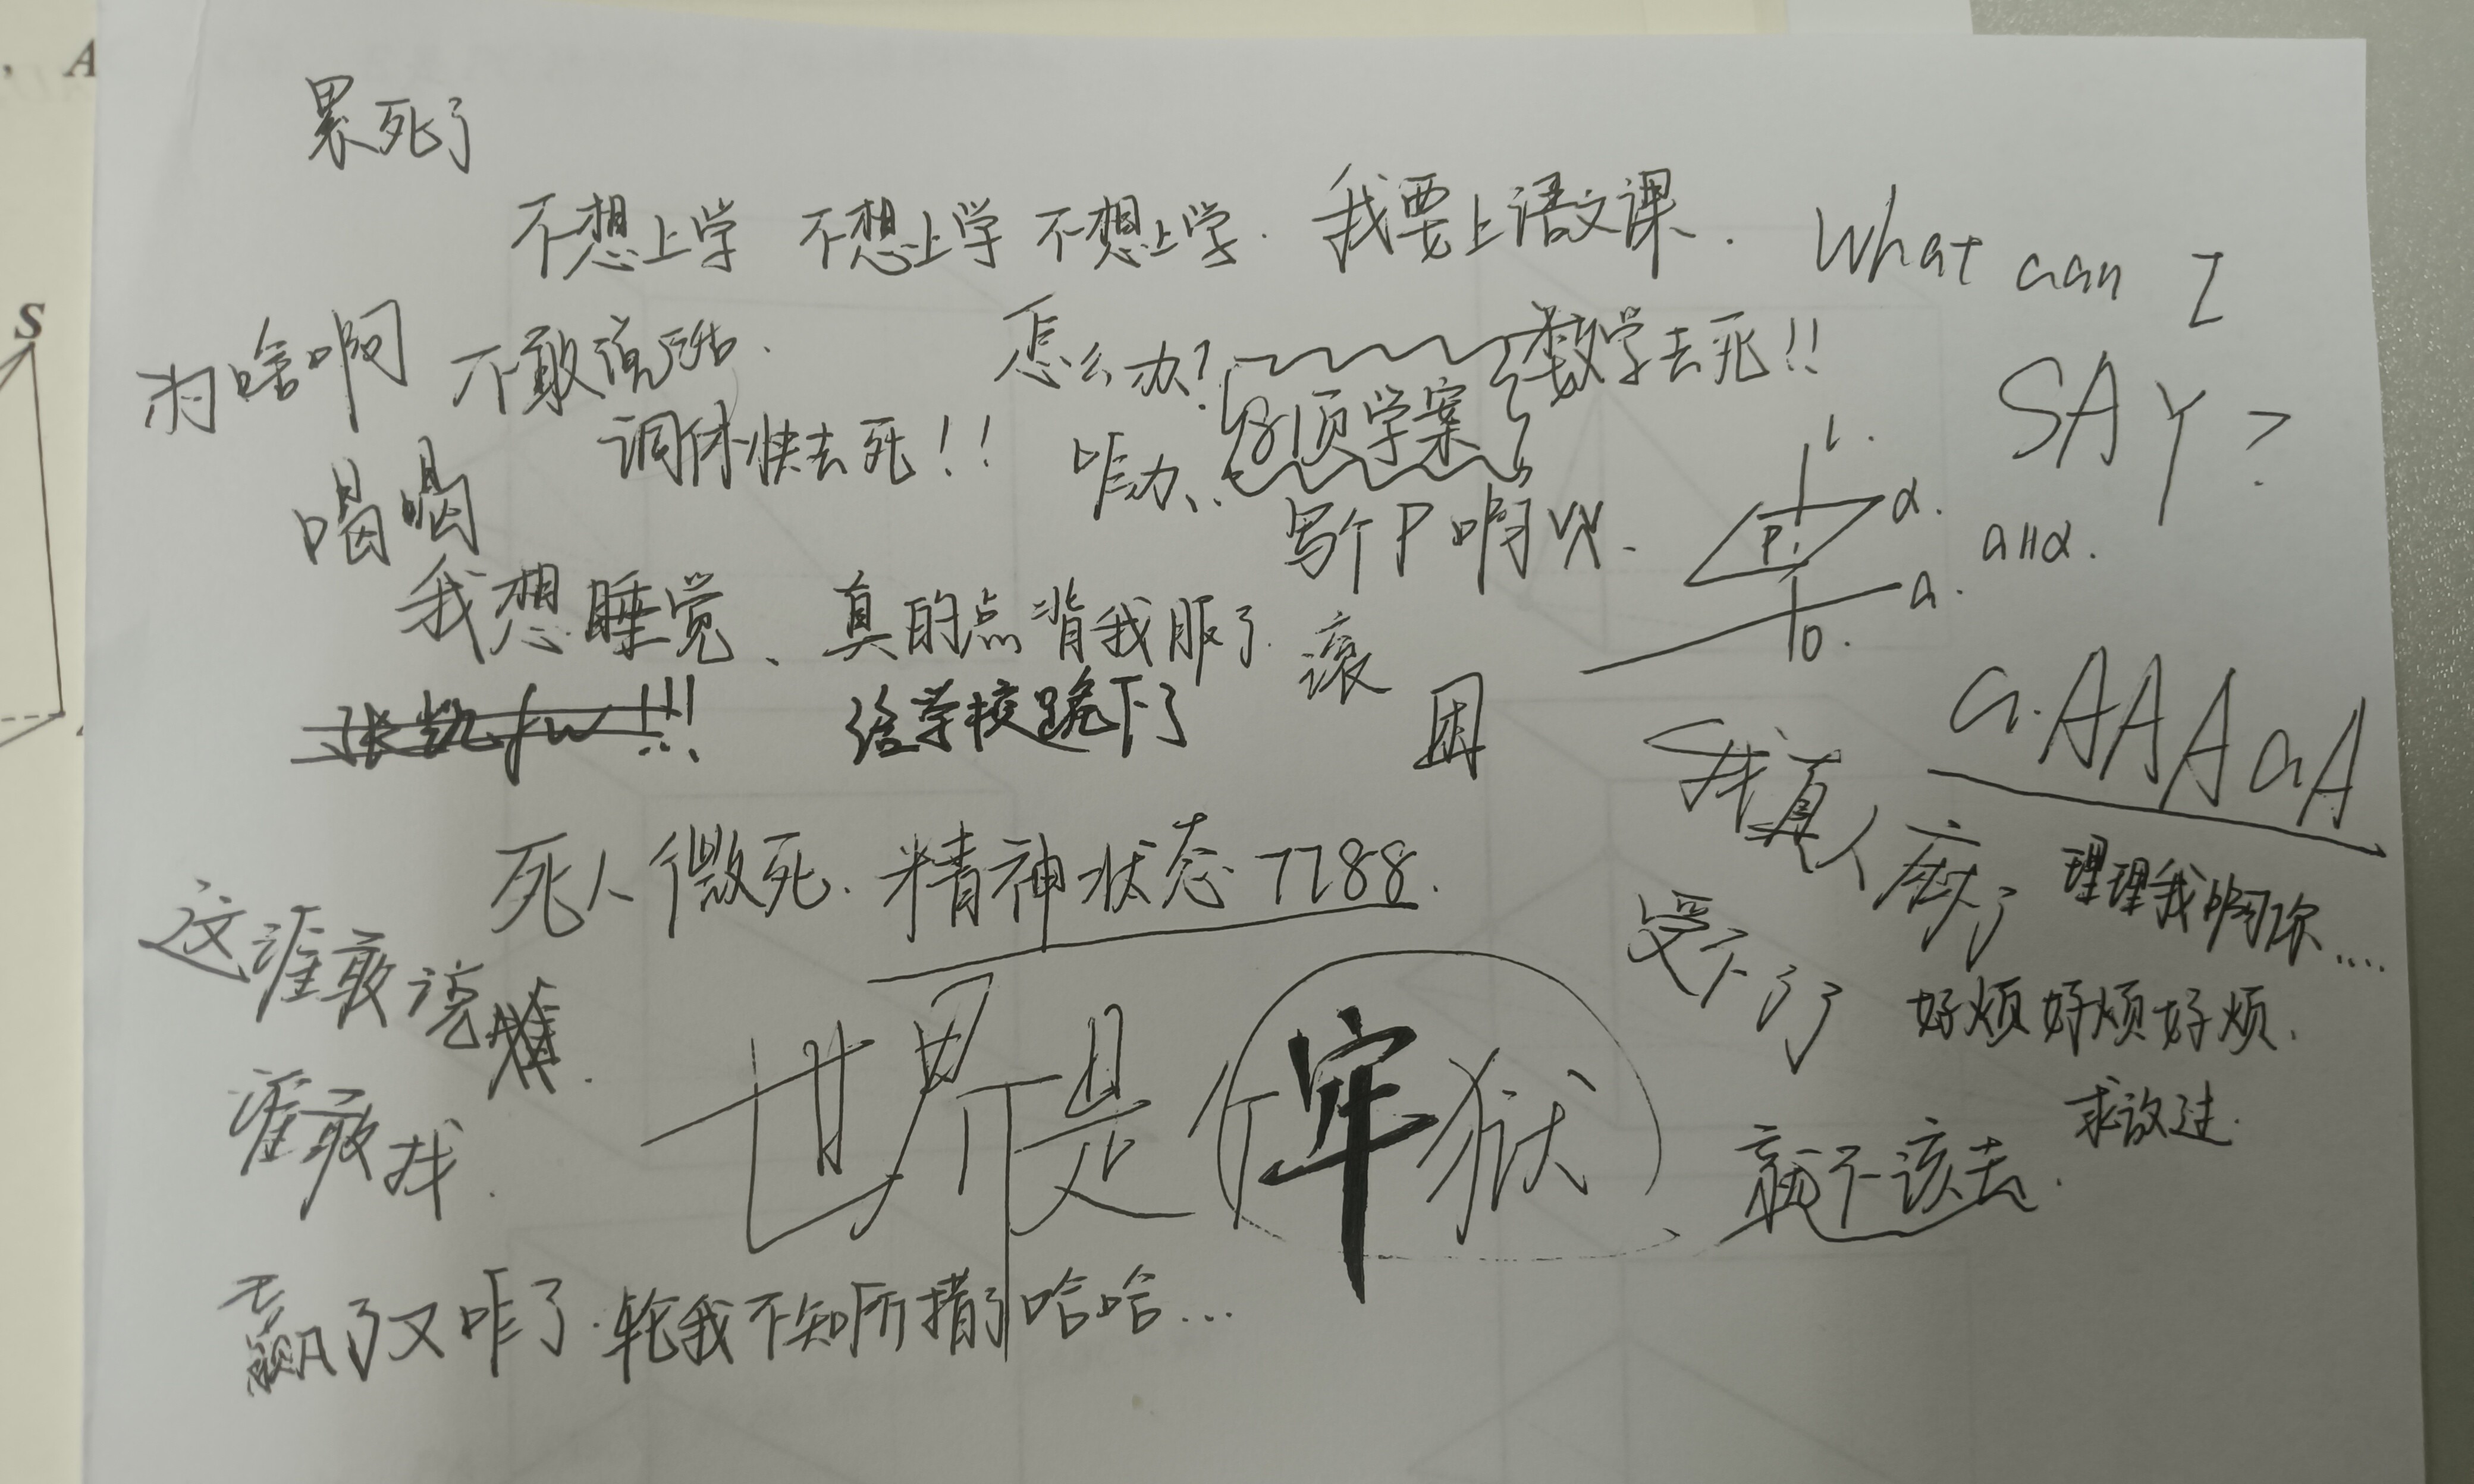 , A
S
累死了
不想上学 不想上学 不想上学. 我要上语文课.
What can I
SAY?
为啥啊 不敢说话.
怎么办?
数学去死!!
调休快去死!!
咋办..
8顶学案
喝喝
写个P啊
l.
α.
P.
a.
a∥α.
我想睡觉、
真的点背我服了.
滚
fw!!!
给学校跪下了
困
a.AAAaA
我真人麻了
理理我啊你....
死人微死. 精神状态7788.
受不了了
好烦好烦好烦.
这谁敢说难.
世界是个牢狱
谁敢找.
求放过.
就不该去.
赢了又咋了.轮我不知所措了哈哈...